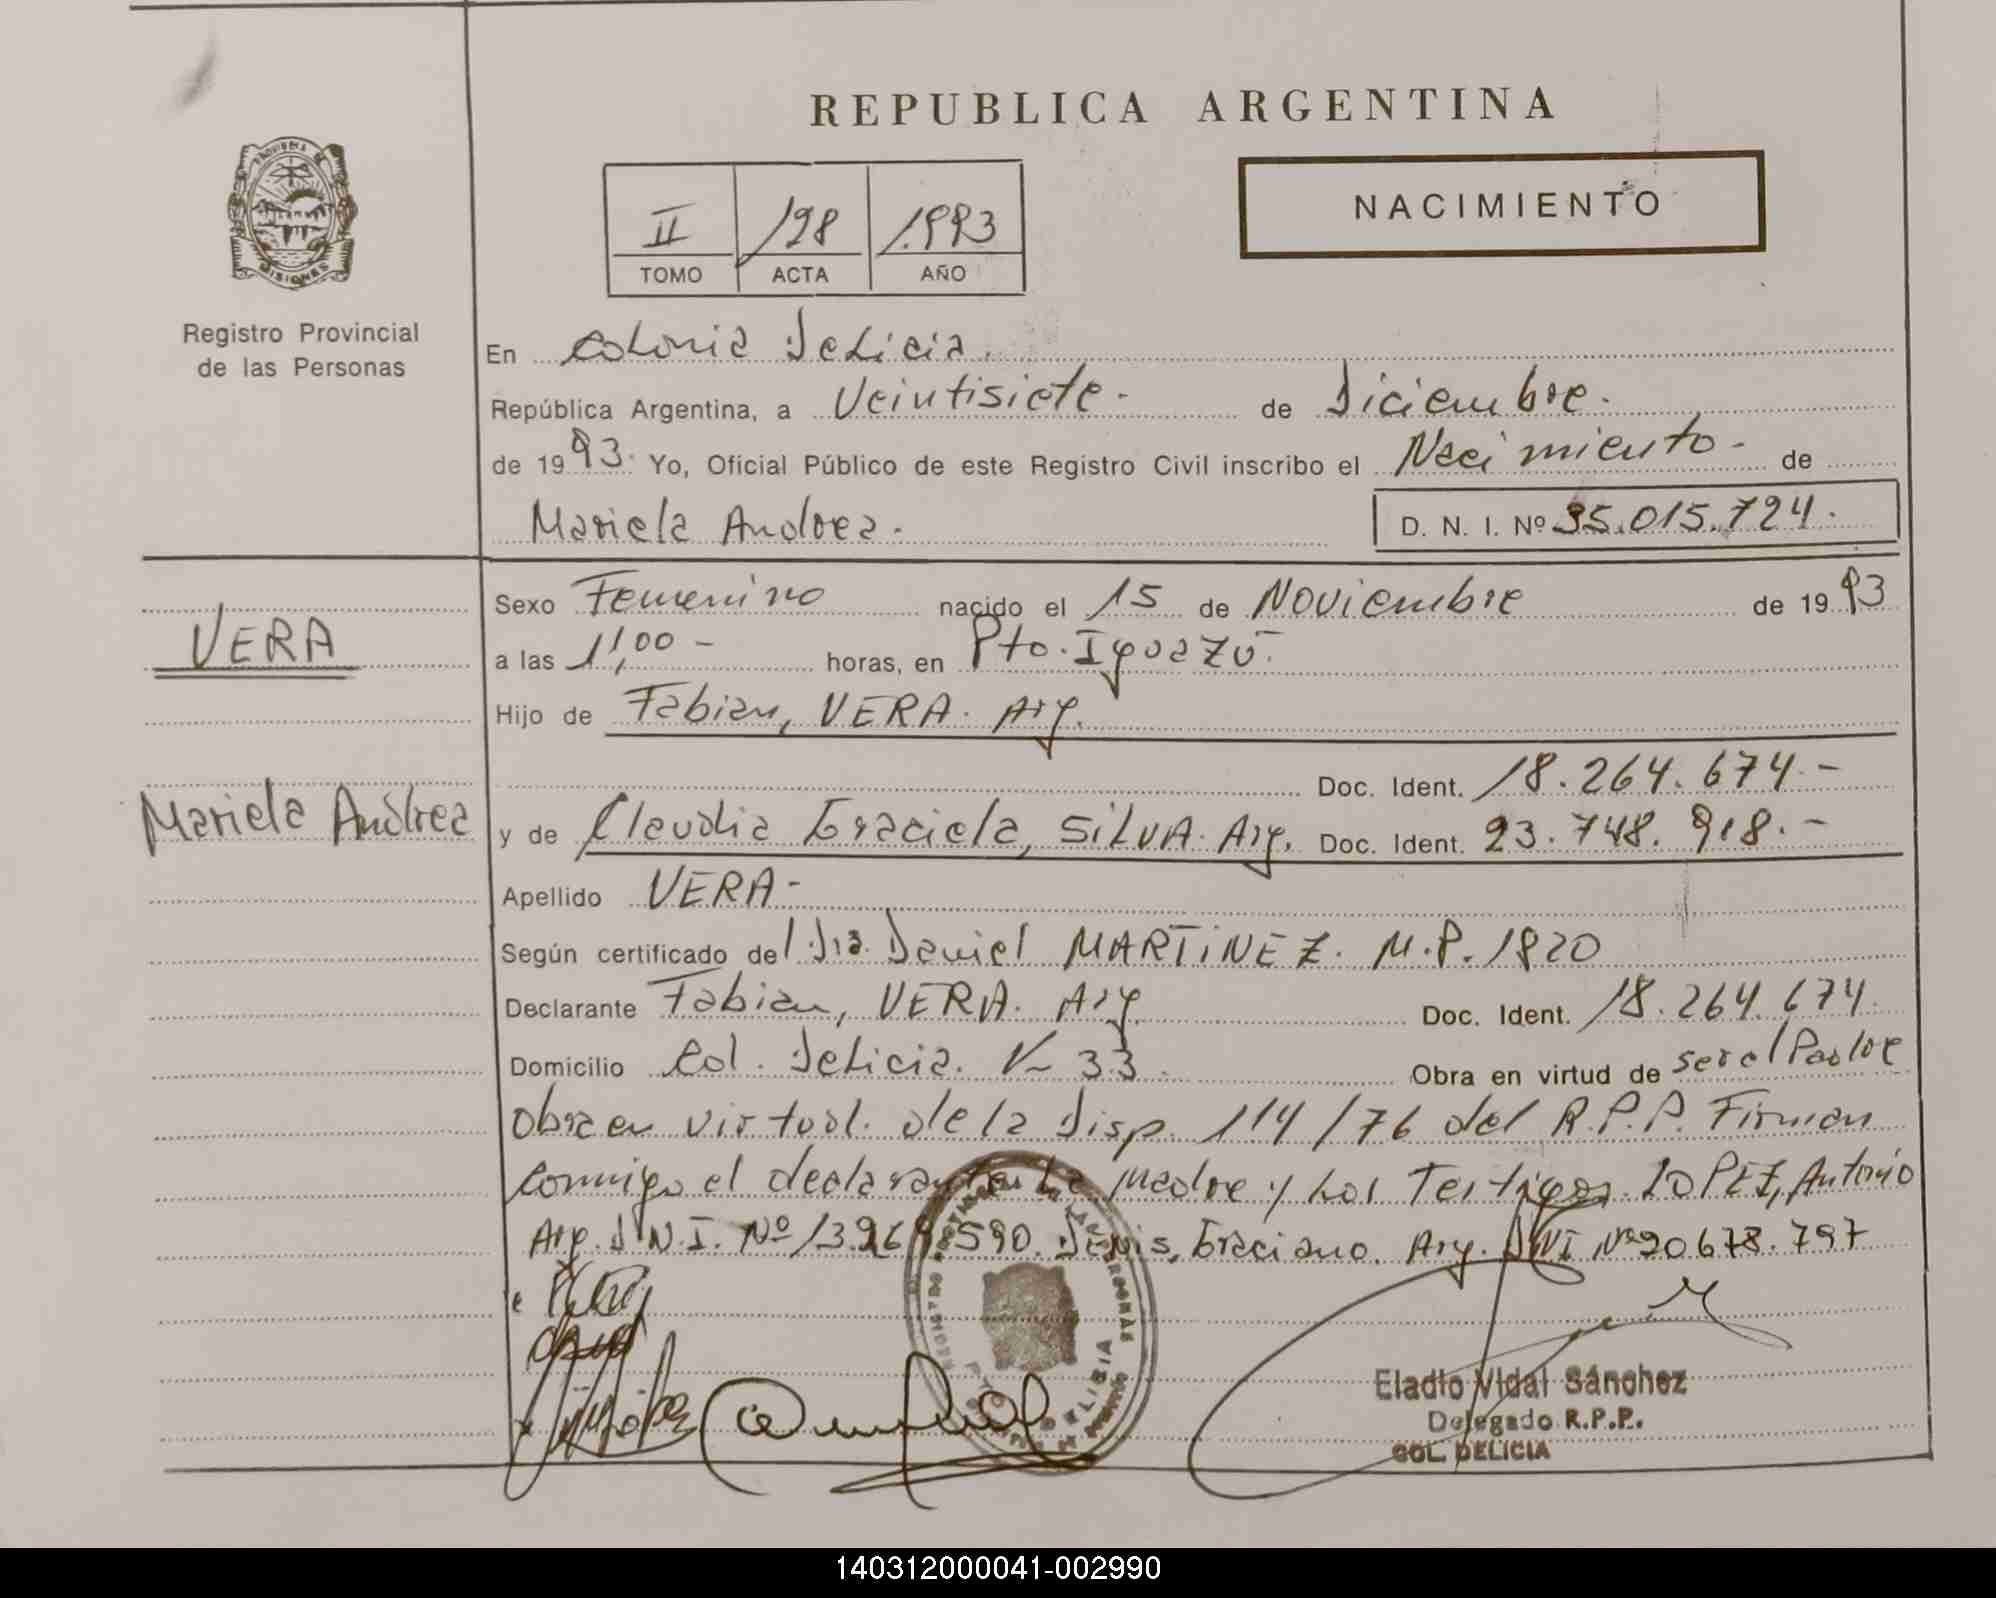 REPUBLICA ARGENTINA
NACIMIENTO
II 198 1993
TOMO ACTA AÑO
PROVINCIA DE
MISIONES
Registro Provincial
de las Personas
En Colonia Delicia.
República Argentina, a Veintisiete - de Diciembre.
de 1993. Yo, Oficial Público de este Registro Civil inscribo el Nacimiento - de
Mariela Andrea. D. N. I. Nº 35.015.724.
VERA
Mariela Andrea
Sexo Femenino nacido el 15 de Noviembre de 1993
a las 11,00 - horas, en Pto. Iguazú.
Hijo de Fabian, VERA. Arg.
Doc. Ident. 18.264.674.-
y de Claudia Graciela, SiLVA. Arg. Doc. Ident. 23.748.918.-
Apellido VERA-
Según certificado del Dr. Daniel MARTiNEZ. M.P. 1820
Declarante Fabian, VERA. Arg Doc. Ident. 18.264.674.
Domicilio Col. Delicia. 33. Obra en virtud de ser el Padre
Obra en virtud. de la Disp. 114/76 del R.P.P. Firman
Conmigo el declarante La Madre y Los Testigos LOPEZ, Antonio
Arg. D.N.I. Nº 13.969.590. Denis, Graciano. Arg. DNI Nº 20.678.797
Eladio Vidal Sánchez
Delegado R.P.P.
COL. DELICIA
140312000041-002990